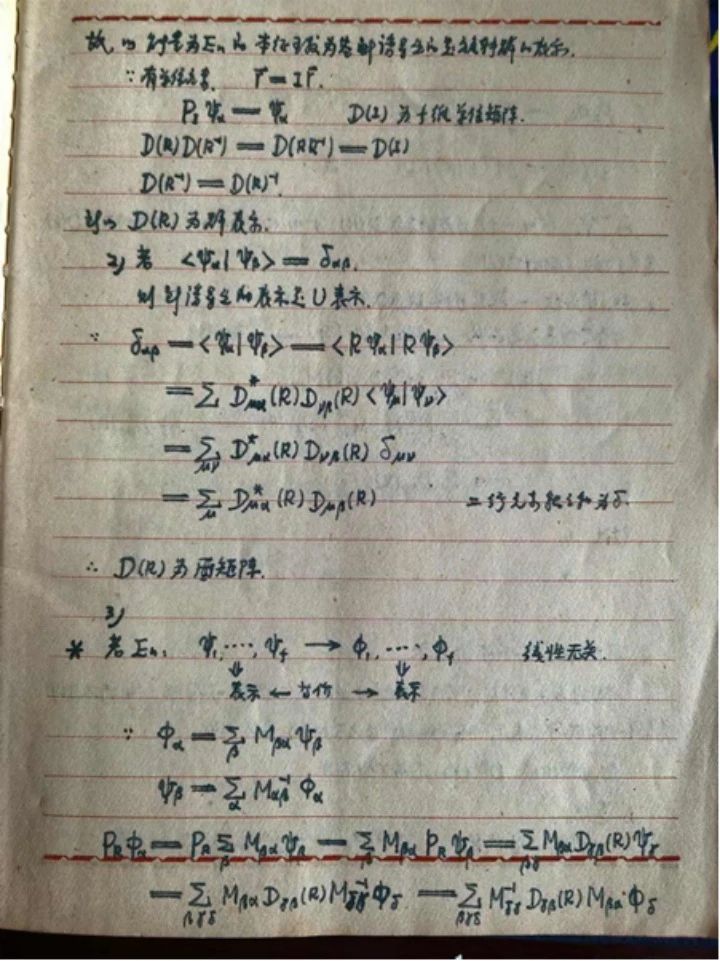 故，以能量为En的本征函数为基，即谱是它的量支群的表示.
∵ 有单位元素. r⃗ = I r⃗.
P_I ψ_α = ψ_α D(I) 为 f 级单位矩阵.
D(R)D(R⁻¹) = D(RR⁻¹) = D(I)
D(R⁻¹) = D(R)⁻¹.
所以 D(R) 为群表示.
2) 若 <ψ_α|ψ_β> = δ_αβ.
则 的表示是 U 表示.
∵ δ_αβ = <ψ_α|ψ_β> = <Rψ_α|Rψ_β>
= Σ D*_μα(R) D_νβ(R) <ψ_μ|ψ_ν>
= Σ_μν D*_μα(R) D_νβ(R) δ_μν
= Σ_μ D*_μα(R) D_μβ(R) 二行元素 为δ.
∴ D(R) 为酉矩阵.
3)
* 若 En, ψ₁, ⋯, ψ_f → Φ₁, ⋯, Φ_f 线性无关.
⇓ ⇓
表示 ← 等价 → 表示
∵ Φ_α = Σ_β M_βα ψ_β
ψ_β = Σ_α M⁻¹_αβ Φ_α
P_R Φ_α = P_R Σ_β M_βα ψ_β = Σ_β M_βα P_R ψ_β = Σ_βγ M_βα D_γβ(R) ψ_γ
= Σ_βγδ M_βα D_γβ(R) M⁻¹_δγ Φ_δ = Σ_βγδ M⁻¹_δγ D_γβ(R) M_βα Φ_δ